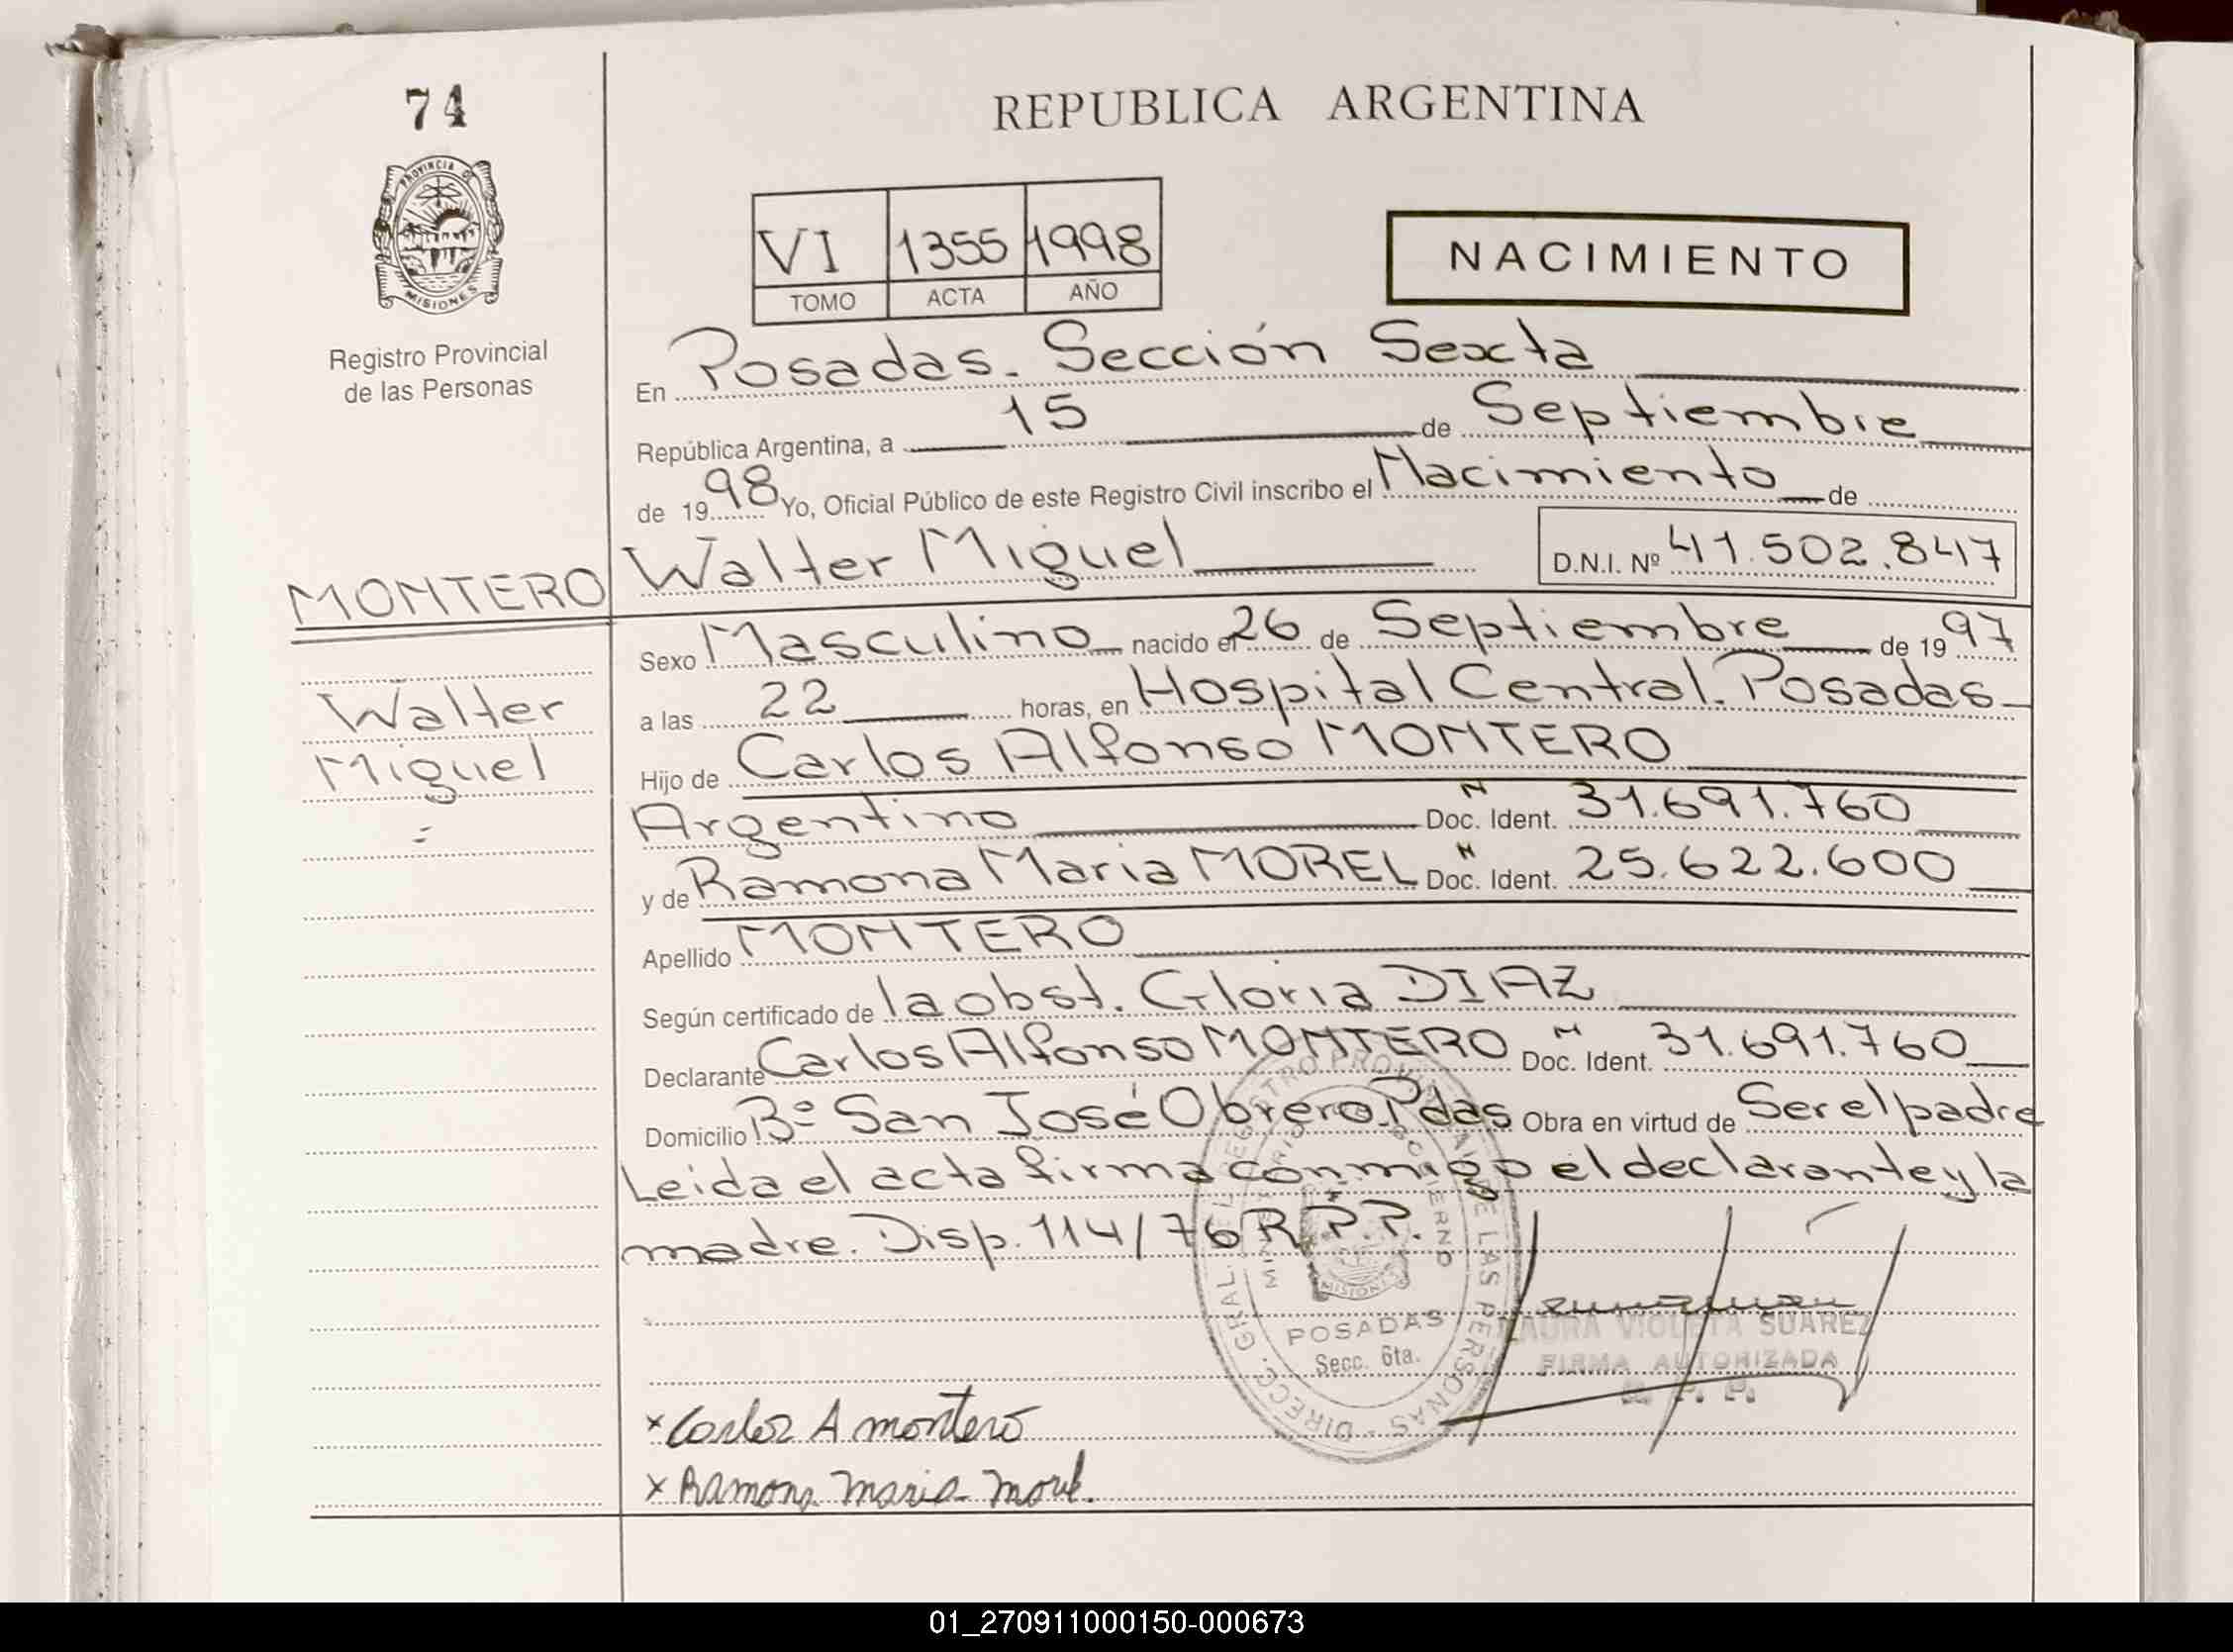 74
REPUBLICA ARGENTINA
PROVINCIA DE
MISIONES
VI 1355 1998
TOMO ACTA AÑO
NACIMIENTO
Registro Provincial
de las Personas
En Posadas. Sección Sexta
República Argentina, a 15 de Septiembre
de 1998 Yo, Oficial Público de este Registro Civil inscribo el Nacimiento de
MONTERO Walter Miguel D.N.I. Nº 41.502.847
Sexo Masculino nacido el 26 de Septiembre de 1997
Walter
a las 22 horas, en Hospital Central. Posadas
Miguel
Hijo de Carlos Alfonso MONTERO
=
Argentino Doc. Ident. N 31.691.760
y de Ramona Maria MOREL Doc. Ident. N 25.622.600
Apellido MONTERO
Según certificado de la obst. Gloria DIAZ
Declarante Carlos Alfonso MONTERO Doc. Ident. N 31.691.760
Domicilio Bº San José Obrero. Pdas Obra en virtud de Ser el padre
Leida el acta firma conmigo el declarante y la
madre. Disp. 114/76 R.P.P.
DIRECC. GRAL. DEL REGISTRO PROVINCIAL DE LAS PERSONAS
MISIONES
POSADAS
Secc. 6ta.
LAURA VIOLETA SUAREZ
FIRMA AUTORIZADA
R. P. P.
x Carlos A montero
x Ramona maria morel.
01_270911000150-000673